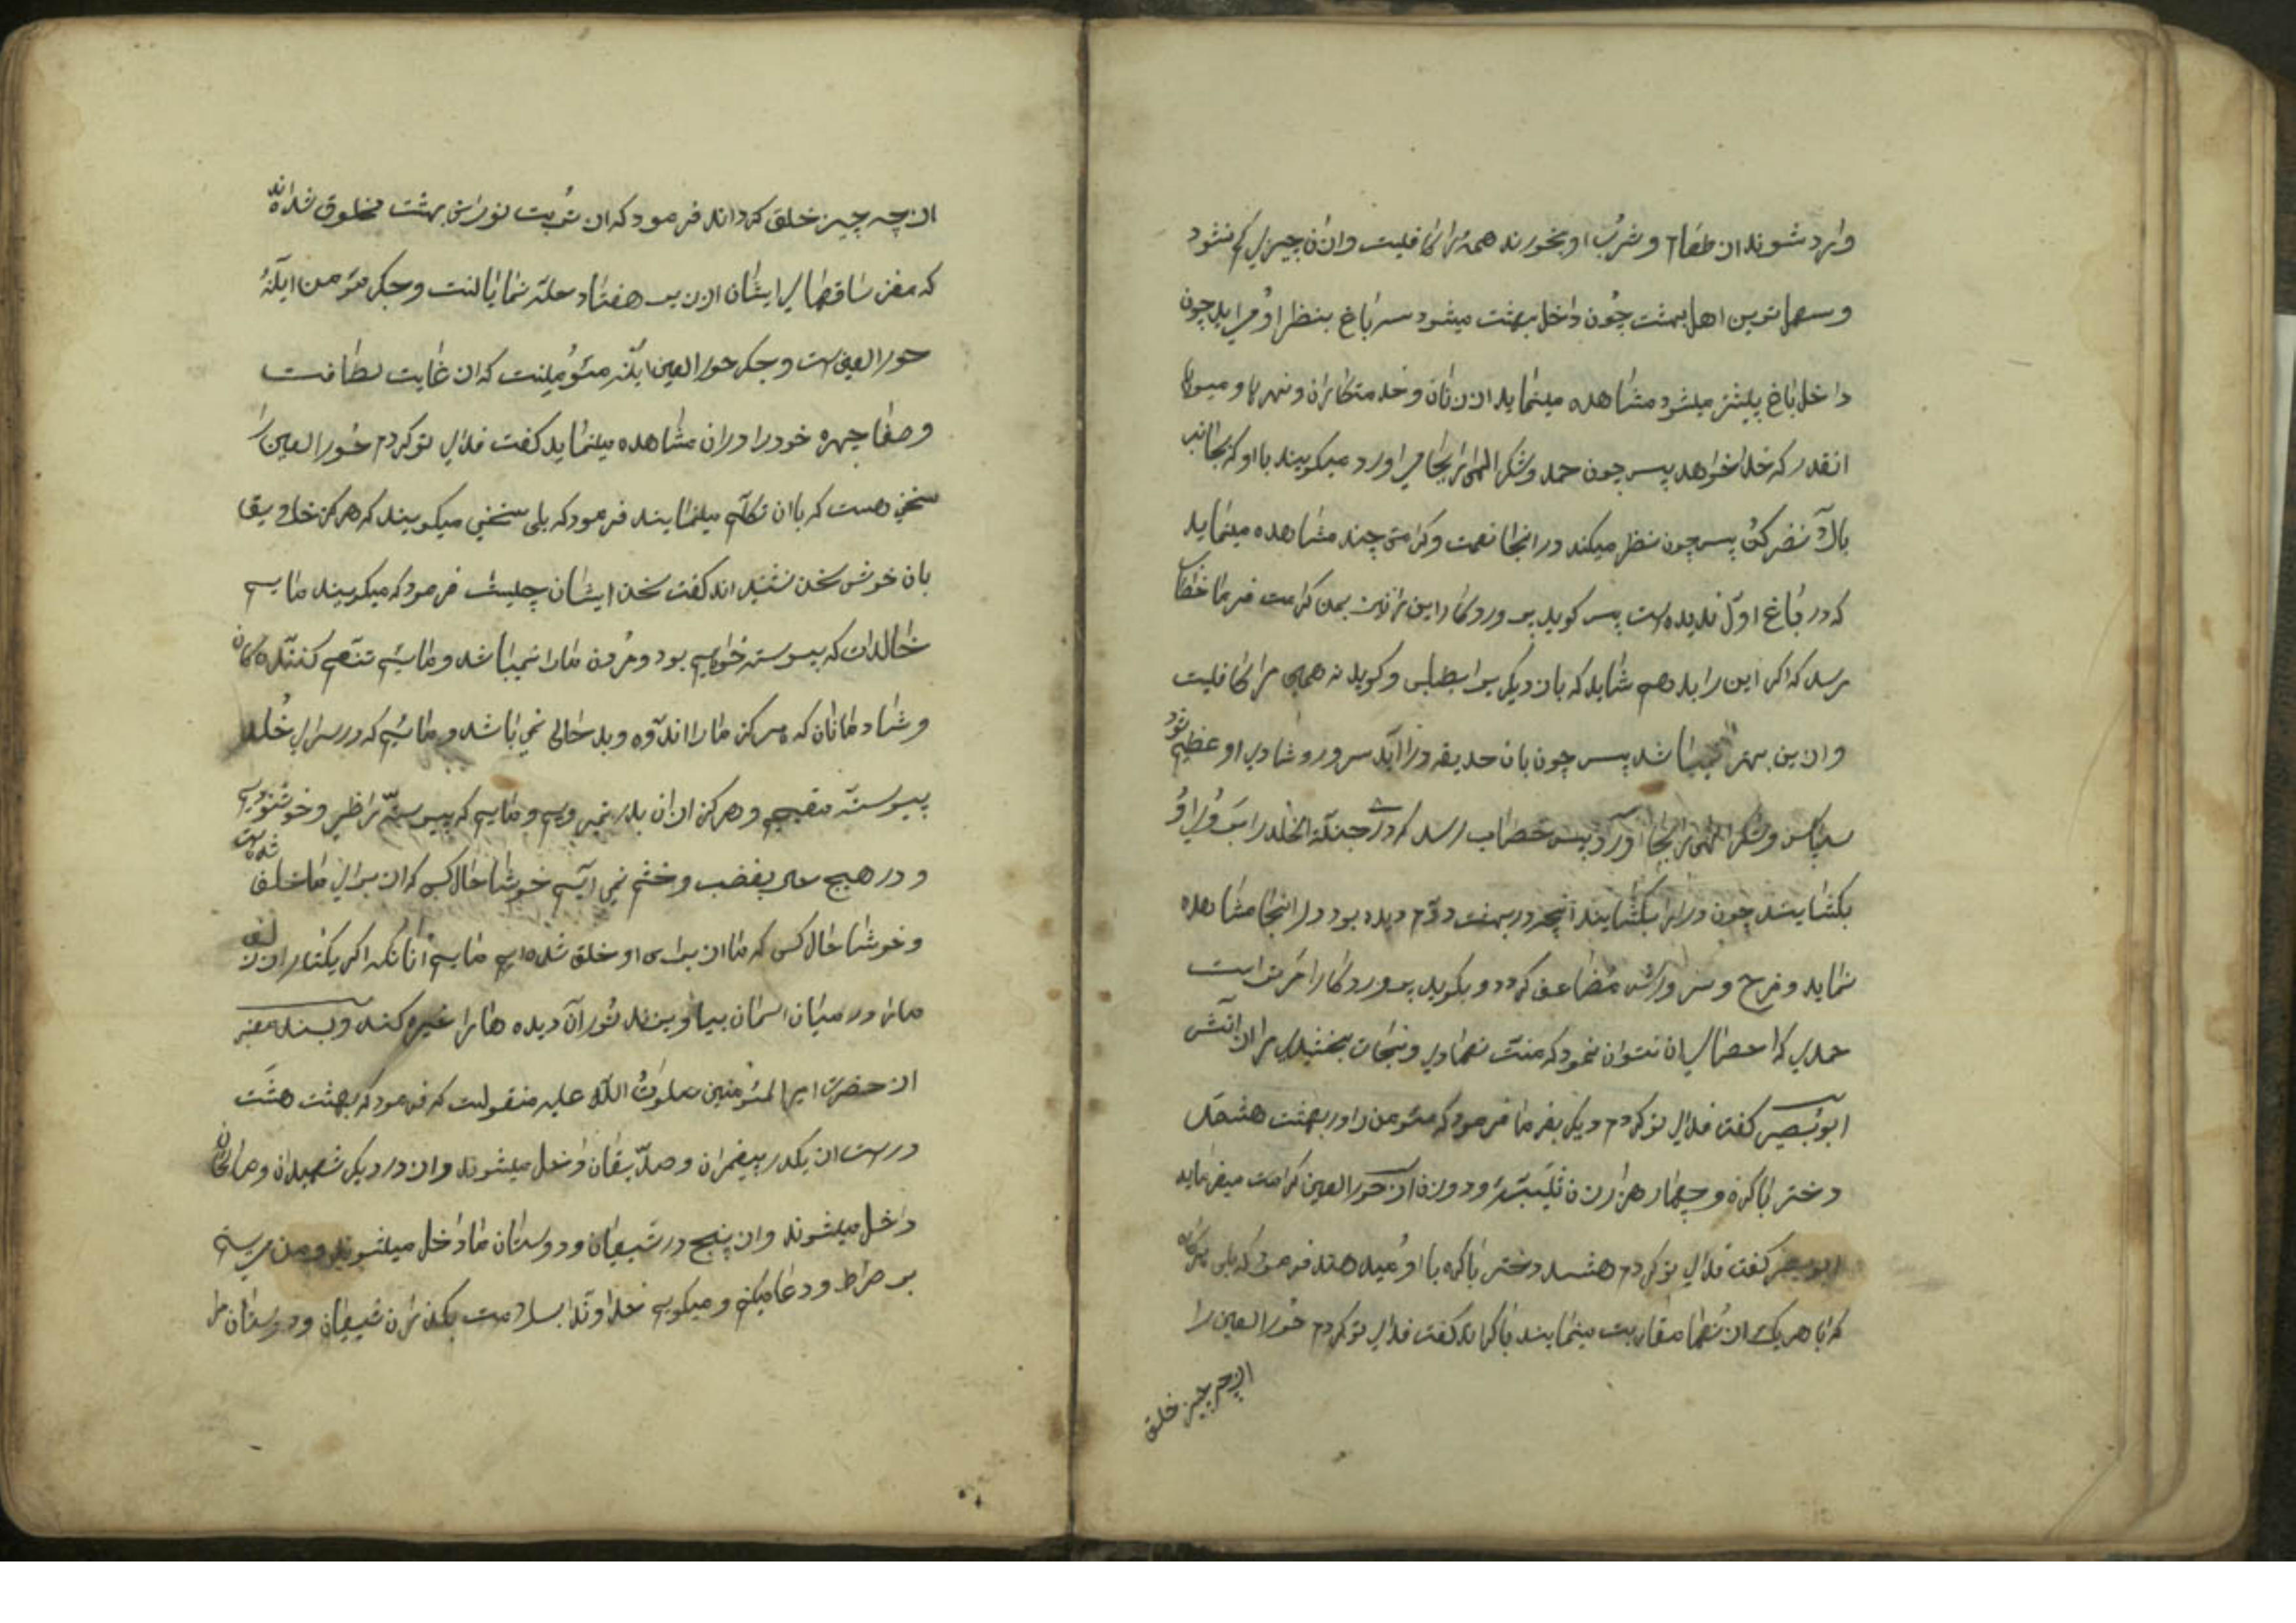 وارد شوند از طعام و شرب او بخورند همه را کافیست و از آن چیزی کم نشود
و سهل‌ترین اهل بهشت چون داخل بهشت میشود سه باغ بنظر او می‌اید چون
داخل باغ پیشتر میشود مشاهده مینماید از زنان و خدمتکاران و نهرها و میوها
انقدر که خدا خواهد پس چون حمد و شکر الهی را بجا می اورد میکویند باو که بجانب
بالا نضر کن پس چون نظر میکند در انجا نعمت و کرامتی چند مشاهده مینماید
که در باغ اول ندیده است پس کوید پروردکارا این را نیز بمن کرامت فرما خطاب
رسد که اکر این را بدهم شاید که باز دیکری را بطلبی و کوید نه همین مرا کافیست
و از این بهتر نمیباشد پس چون بان حدیقه در اید سرور و شادی او عظیم شود
سپاس و شکر الهی را بجا آورد پس خطاب رسد که در جنة الخلد را بروی او
بکشایند چون در را بکشایند انچه در بهشت دوم دیده بود در انجا مشاهده
نماید و فرح و سرورش مضاعف کردد و بکوید پروردکارا مر تراست
حمدی که احصای ان نتوان نمود که منت نهادی و نجات بخشیدی مرا از اتش
ابوبصیر کفت فدای تو کردم دیکر بفرما فرمود که مئومن را در بهشت هشتصد
دختر باکره و چهار هزار زن ثیبه و دو زن از حورالعین کرامت میفرماید
ابوبصیر کفت فدای تو کردم هشصد دختر باکره باو میدهند فرمود که بلی
که با هر یک از انها مقاربت مینمایند باکره‌اند کفت فدای تو کردم حورالعین را
از چه چیز خلق
از چه چیز خلق کرده‌اند فرمود که از تربت نورانی بهشت مخلوق شده‌اند
که مغز ساقهای ایشان از زیر هفتاد حله نمایانست و جکر مئومن اینهٔ
حورالعین است و جکر حورالعین اینه مئومنست که از غایت لطافت
و صفا چهره خود را در ان مشاهده مینماید کفت فدای تو کردم حورالعین را
سخنی هست که بان تکلم مینمایند فرمود که بلی سخنی میکویند که هرکز خلایق
بان خوش سخن نشنیده‌اند کفت سخن ایشان چیست فرمود که میکویند مایم
خالدات که پیوسته خواهیم بود و مردن مارا نمیباشد و مائیم تنعم کنندکان
و شادمانان که هرکز مارا اندوه و بدحالی نمی باشد و مائیم که در سرای خلد
پیوسته مقیمیم و هرکز از ان بدر نمیرویم و مایم که پیوسته راضی و خوشنودیم
و در هیچ حال بغضب و خشم نمی آییم خوشا حال کسی که از برای ما خلق شده است
و خوشا حال کسی که ما از برای او خلق شده‌ایم مایم انانکه اکر یکتار از زلف
ما در میان اسمان بیاویزند نور آن دیده هارا خیره کند و بسند معتبر
از حضرت امیرالمئومنین صلوت الله علیه منقولست که فرمود که بهشت هشت
در است از یکدر پیغمبران و صدیقان داخل میشوند و از در دیکر شهیدان و صالحان
داخل میشوند و از پنج در شیعیان و دوستان ما داخل میشوند و من می‌ایستم
بر صراط و دعا میکنم و میکویم خداوندا بسلامت بکذران شیعیان و دوستان مرا